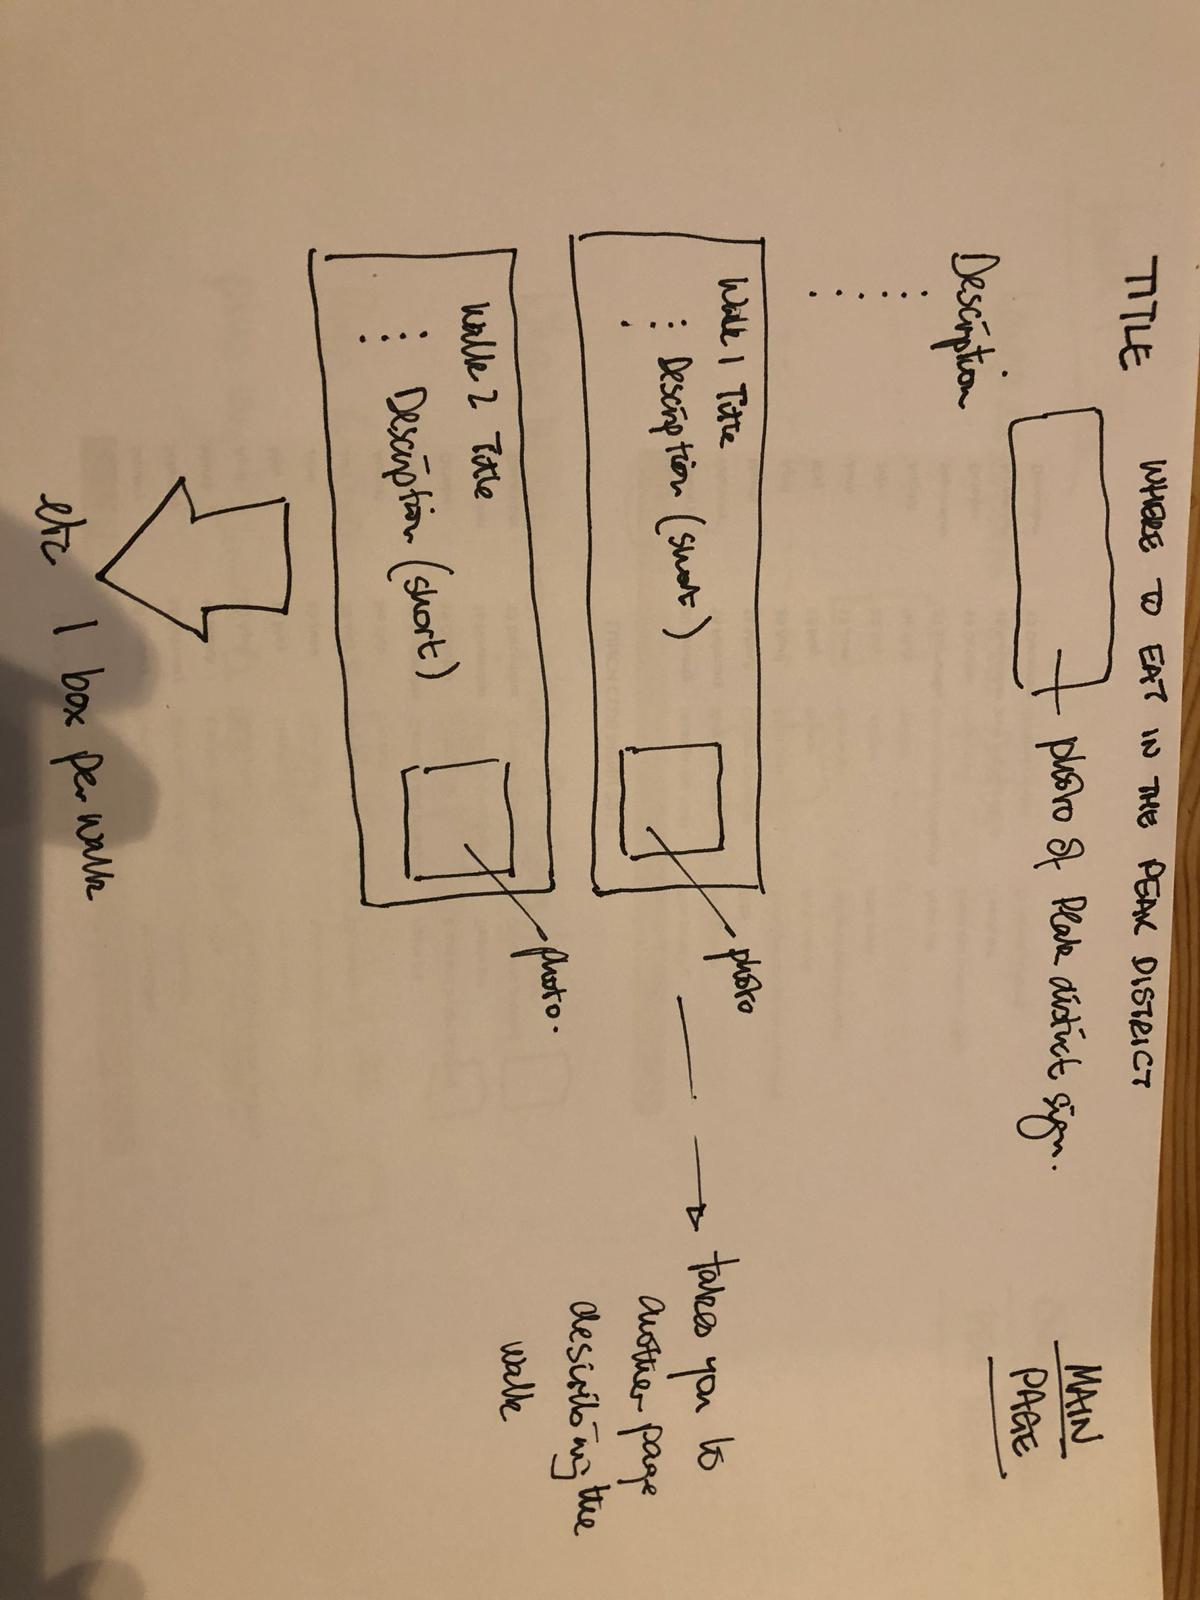 MAIN
PAGE
TITLE WHERE TO EAT IN THE PEAK DISTRICT
photo of Peak district sign.
Description
Walk 1 Title
Description (short)
photo
takes you to
another page
describing the
walk
Walk 2 Title
Description (short)
photo.
etc 1 box per walk